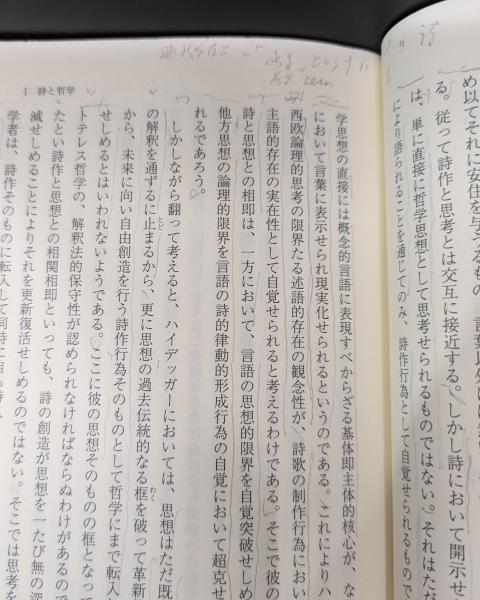 め以てそれに安住を与うるもの
る。従って詩作と思考とは交互に接近する。しかし詩において開示せ
は、単に直接に哲学思想として思考せられるものではない。それはただ
により語られることを通じてのみ、詩作行為として自覚せられるもので
1 詩と哲学
学思想の直接には概念的言語に表現すべからざる基体即主体的核心が、な
において言葉に表示せられ現実化せられるというのである。これによりハ
西欧論理的思考の限界たる述語的存在の観念性が、詩歌の制作行為におい
主語的存在の実在性として自覚せられると考えるわけである。そこで彼の
詩と思想との相即は、一方において、言語の思想的限界を自覚突破せしめ
他方思想の論理的限界を言語の詩的律動的形成行為の自覚において超克せ
れるであろう。
しかしながら翻って考えると、ハイデッガーにおいては、思想はただ既
の解釈を通ずるに止まるから、更に思想の過去伝統的なる框を破って革新
から、未来に向い自由創造を行う詩作行為そのものとして哲学にまで転入
せしめるとはいわれないようである。ここに彼の思想そのものの框となっ
トテレス哲学の、解釈法的保守性が認められなければならぬわけがあるので
たとい詩作と思想との相関相即といっても、詩の創造が思想を一たび無の深
滅せしめることによりそれを更新復活せしめるのではない。そこでは思考を
学者は、詩作そのものに転入して同時に